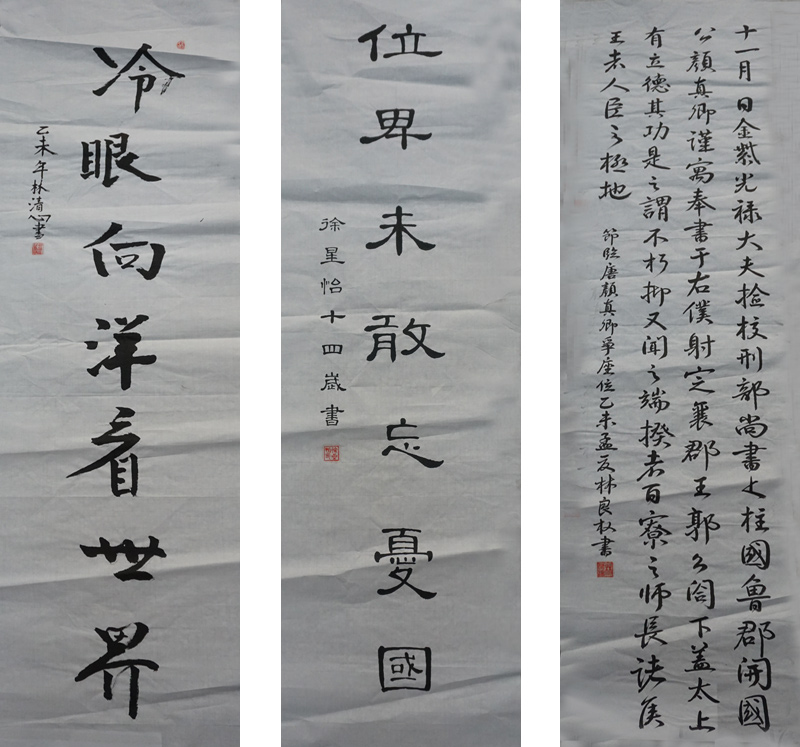 冷眼向洋看世界
乙未年林清書
位卑未敢忘憂國
徐星怡十四歲書
十一月日金紫光禄大夫捡校刑部尚書上柱國魯郡開國
公顔真卿謹寓奉書于右僕射定襄郡王郭公閤下盖太上
有立德其功是之謂不朽抑又闻之端揆者百寮之师長诸侯
王者人臣之極地
節临唐顔真卿爭座位乙未孟夏林良权書